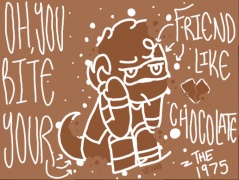 OH, YOU
BITE
YOUR
FRIEND
LIKE
CHOCOLATE
~ THE
1975